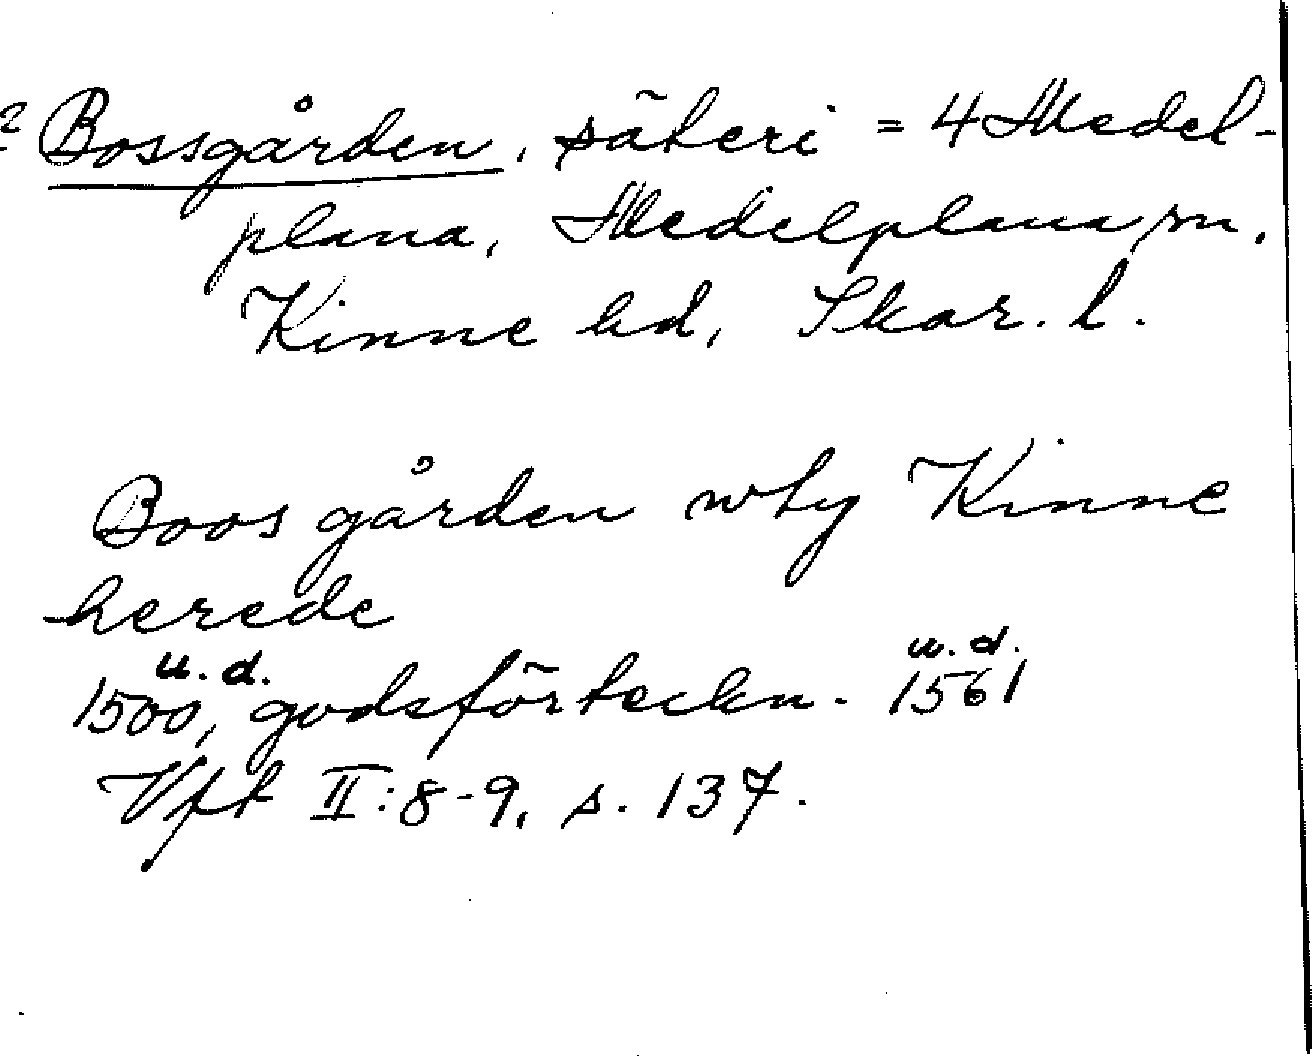 ? Bossgården, säteri = 4 Medel-
plana, Medelplana sn.
Kinne hd, Skar. l.
Boos gården wty Kinne
herede
u. d. u. d.
1500, godsförteckn. 1561
Vft II:8-9, s. 137.